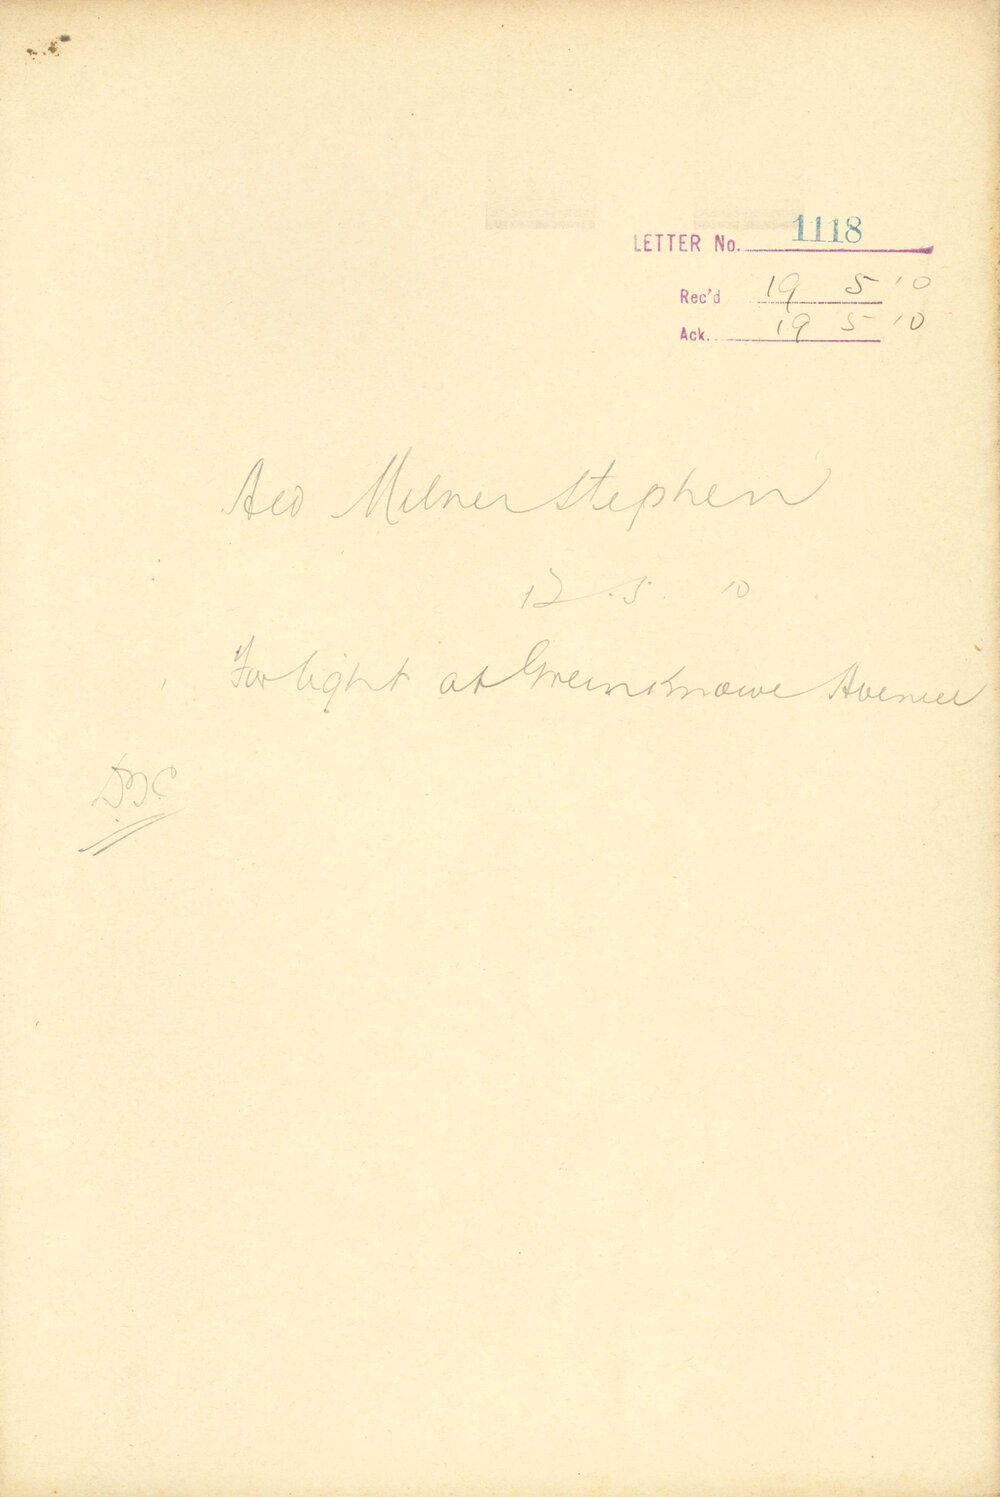 LETTER No. 1118
Rec'd 19 5 10
Ack. 19 5 10
Milner Stephen
12.5.10
For light at Greenknowe Avenue